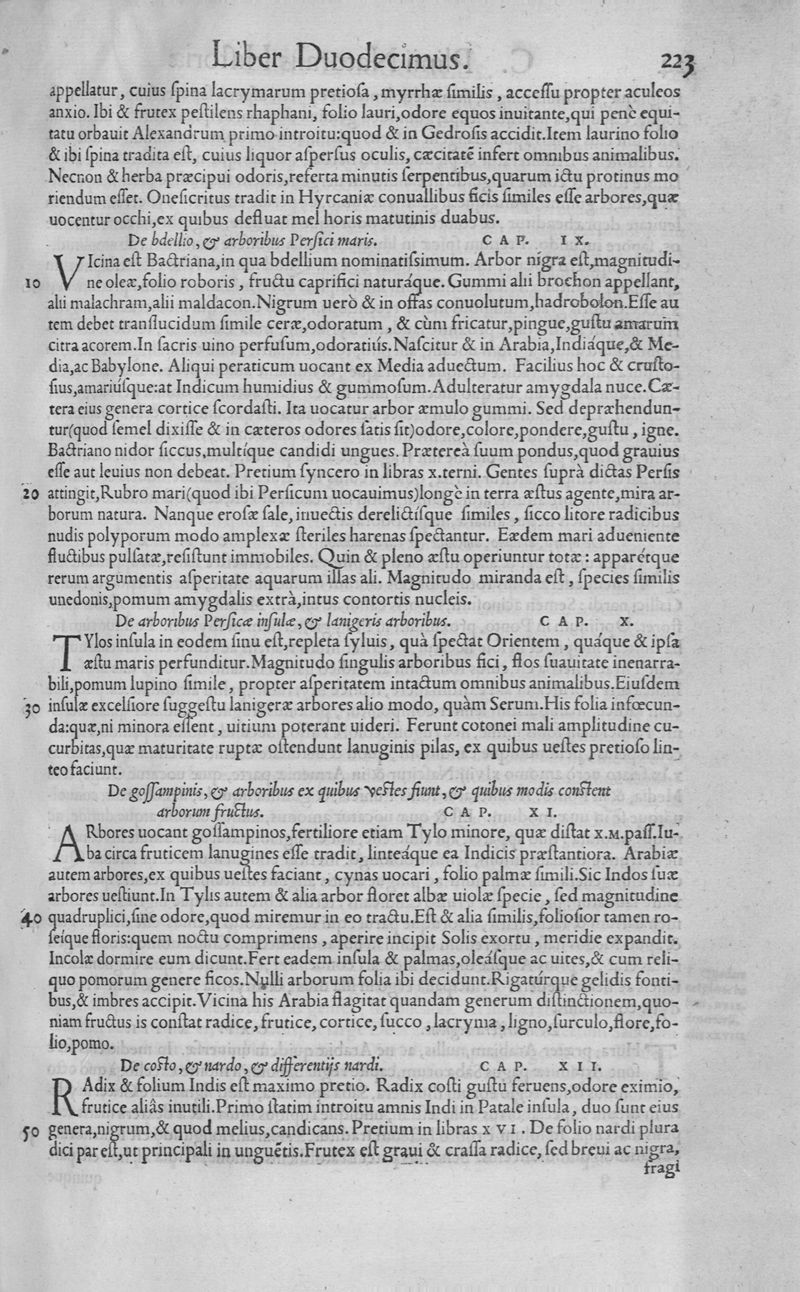 Liber Duodecimus. 223
appellatur, cuius ſpina lacrymarum pretioſa, myrrhæ ſimilis, acceſſu propter aculeos
anxio. Ibi & frutex peſtilens rhaphani, folio lauri, odore equos inuitante, qui penè equi-
tatu orbauit Alexandrum primo introitu: quod & in Gedroſis accidit. Item laurino folio
& ibi ſpina tradita eſt, cuius liquor aſperſus oculis, cæcitatē infert omnibus animalibus.
Necnon & herba præcipui odoris, referta minutis ſerpentibus, quarum ictu protinus mo
riendum eſſet. Oneſicritus tradit in Hyrcaniæ conuallibus ficis ſimiles eſſe arbores, quæ
uocentur occhi, ex quibus defluat mel horis matutinis duabus.
De bdellio, & arboribus Perſici maris. CAP. IX.
VIcina eſt Bactriana, in qua bdellium nominatiſsimum. Arbor nigra eſt, magnitudi-
10 ne oleæ, folio roboris, fructu caprifici naturáque. Gummi alii brochon appellant,
alii malachram, alii maldacon. Nigrum uerò & in offas conuolutum, hadrobolon. Eſſe au
tem debet tranſlucidum ſimile ceræ, odoratum, & cùm fricatur, pingue, guſtu amarum
citra acorem. In ſacris uino perfuſum, odoratiús. Naſcitur & in Arabia, Indiáque, & Me-
dia, ac Babylone. Aliqui peraticum uocant ex Media aduectum. Facilius hoc & cruſto-
ſius, amariúſque: at Indicum humidius & gummoſum. Adulteratur amygdala nuce. Cæ-
tera eius genera cortice ſcordaſti. Ita uocatur arbor æmulo gummi. Sed depræhendun-
tur (quod ſemel dixiſſe & in cæteros odores ſatis ſit) odore, colore, pondere, guſtu, igne.
Bactriano nidor ſiccus, multíque candidi ungues. Prætereà ſuum pondus, quod grauius
eſſe aut leuius non debeat. Pretium ſyncero in libras x. terni. Gentes ſuprà dictas Perſis
20 attingit, Rubro mari (quod ibi Perſicum uocauimus) longè in terra æſtus agente, mira ar-
borum natura. Nanque eroſæ ſale, inuectis derelictíſque ſimiles, ſicco litore radicibus
nudis polyporum modo amplexæ ſteriles harenas ſpectantur. Eædem mari adueniente
fluctibus pulſatæ, reſiſtunt immobiles. Quin & pleno æſtu operiuntur totæ: apparétque
rerum argumentis aſperitate aquarum illas ali. Magnitudo miranda eſt, ſpecies ſimilis
unedonis, pomum amygdalis extrà, intus contortis nucleis.
De arboribus Perſicæ inſulæ, & lanigeris arboribus. CAP. X.
TYlos inſula in eodem ſinu eſt, repleta ſyluis, quà ſpectat Orientem, quáque & ipſa
æſtu maris perfunditur. Magnitudo ſingulis arboribus fici, flos ſuauitate inenarra-
bili, pomum lupino ſimile, propter aſperitatem intactum omnibus animalibus. Eiuſdem
30 inſulæ excelſiore ſuggeſtu lanigeræ arbores alio modo, quàm Serum. His folia infœcun-
da: quæ, ni minora eſſent, uitium poterant uideri. Ferunt cotonei mali amplitudine cu-
curbitas, quæ maturitate ruptæ oſtendunt lanuginis pilas, ex quibus ueſtes pretioſo lin-
teo faciunt.
De goſſampinis, & arboribus ex quibus veſtes fiunt, & quibus modis conſtent
arborum fructus. CAP. XI.
ARbores uocant goſſampinos, fertiliore etiam Tylo minore, quæ diſtat x.M.paſſ. Iu-
ba circa fruticem lanugines eſſe tradit, linteáque ea Indicis præſtantiora. Arabiæ
autem arbores, ex quibus ueſtes faciant, cynas uocari, folio palmæ ſimili. Sic Indos ſuæ
arbores ueſtiunt. In Tylis autem & alia arbor floret albæ uiolæ ſpecie, ſed magnitudine
40 quadruplici, ſine odore, quod miremur in eo tractu. Eſt & alia ſimilis, folioſior tamen ro-
ſeíque floris: quem noctu comprimens, aperire incipit Solis exortu, meridie expandit.
Incolæ dormire eum dicunt. Fert eadem inſula & palmas, oleáſque ac uites, & cum reli-
quo pomorum genere ficos. Nulli arborum folia ibi decidunt. Rigatúrque gelidis fonti-
bus, & imbres accipit. Vicina his Arabia flagitat quandam generum diſtinctionem, quo-
niam fructus is conſtat radice, frutice, cortice, ſucco, lacryma, ligno, ſurculo, flore, fo-
lio, pomo.
De coſto, & nardo, & differentijs nardi. CAP. XII.
RAdix & folium Indis eſt maximo pretio. Radix coſti guſtu feruens, odore eximio,
frutice aliâs inutili. Primo ſtatim introitu amnis Indi in Patale inſula, duo ſunt eius
50 genera, nigrum, & quod melius, candicans. Pretium in libras XVI. De folio nardi plura
dici par eſt, ut principali in unguētis. Frutex eſt graui & craſſa radice, ſed breui ac nigra,
fragi